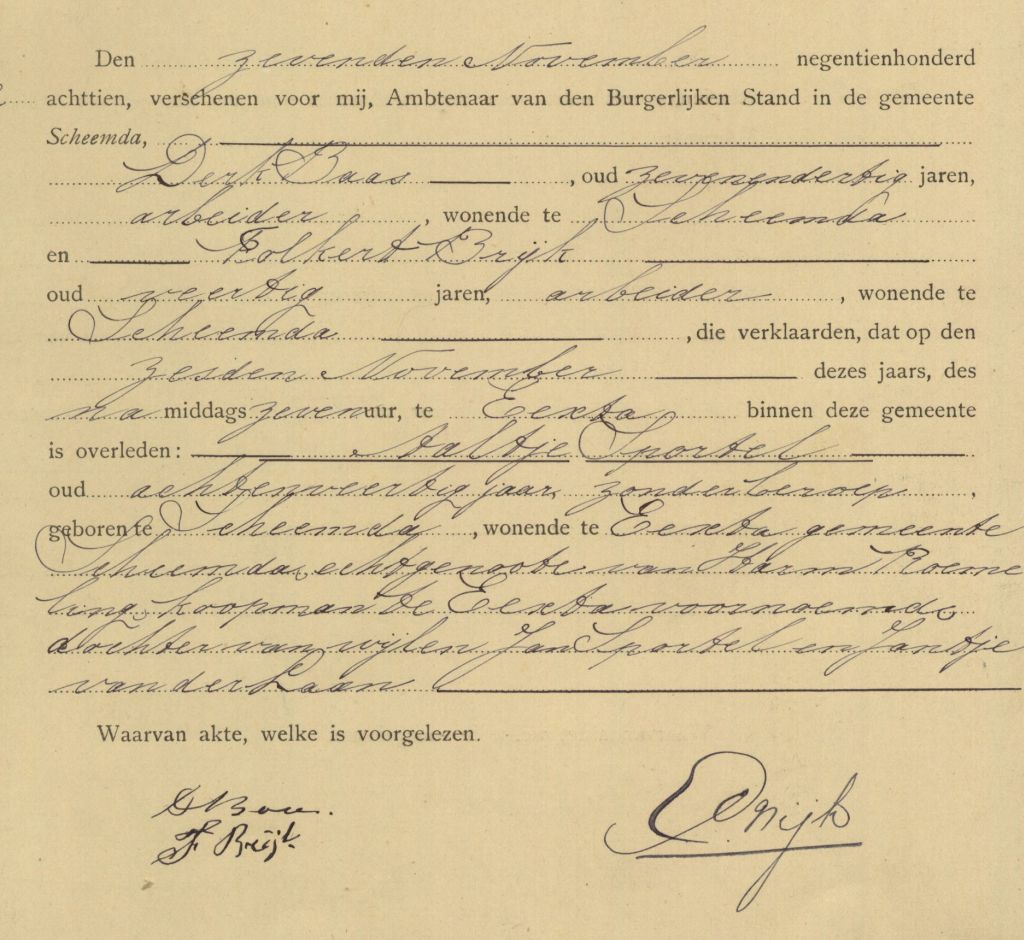 Den zevenden November negentienhonderd
achttien, verschenen voor mij, Ambtenaar van den Burgerlijken Stand in de gemeente
Scheemda,
Derk Baas, oud zevenendertig jaren,
arbeider, wonende te Scheemda
en Folkert Brijk
oud veertig jaren, arbeider, wonende te
Scheemda, die verklaarden, dat op den
zesden November dezes jaars, des
na middags zeven uur, te Eexta binnen deze gemeente
is overleden: Aaltje Sportel
oud achtenveertig jaar, zonder beroep,
geboren te Scheemda, wonende te Eexta gemeente
Scheemda, echtgenoote van Harm Roeme
ling, koopman te Eexta voornoemd,
dochter van wijlen Jan Sportel en Jantje
van der Laan
Waarvan akte, welke is voorgelezen.
D Baas.
F Breijk